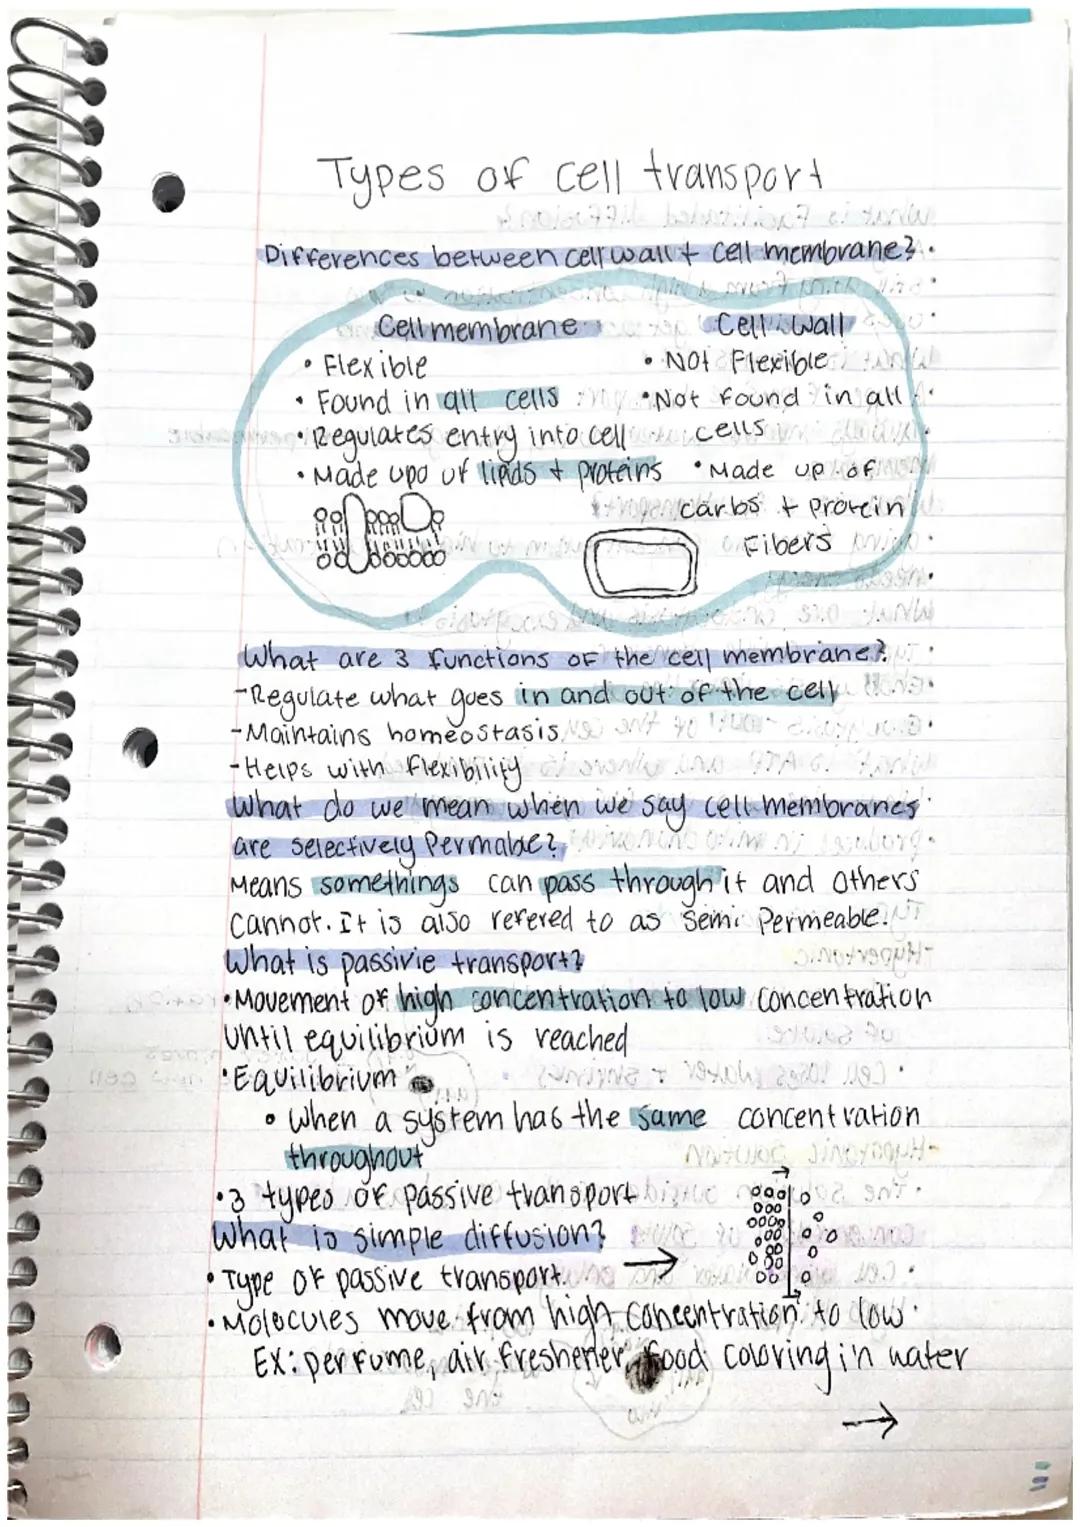 Types of cell transport
Differences between cell wall + cell membrane?
Cell membrane
Cell wall
• Flexible
• Not Flexible
• Found in all cells
• Not found in all
cells
• Regulates entry into cell
• Made upo of lipids + proteins
• Made up of
carbs + protein
Fibers
What are 3 functions of the cell membrane?
-Regulate what goes in and out of the cell
-Maintains homeostasis
-Helps with flexibility
What do we mean when we say cell membranes
are selectively Permable?
Means somethings can pass through it and others
cannot. It is also refered to as semi Permeable.
What is passivie transport?
•Movement of high concentration to low concentration
until equilibrium is reached
•Equilibrium
• When a system has the same concentration
throughout
•3 types of passive transport
What is simple diffusion?
• Type of passive transport.
•Molecules move from high concentration to low
Ex: perfume, air freshener, food coloring in water